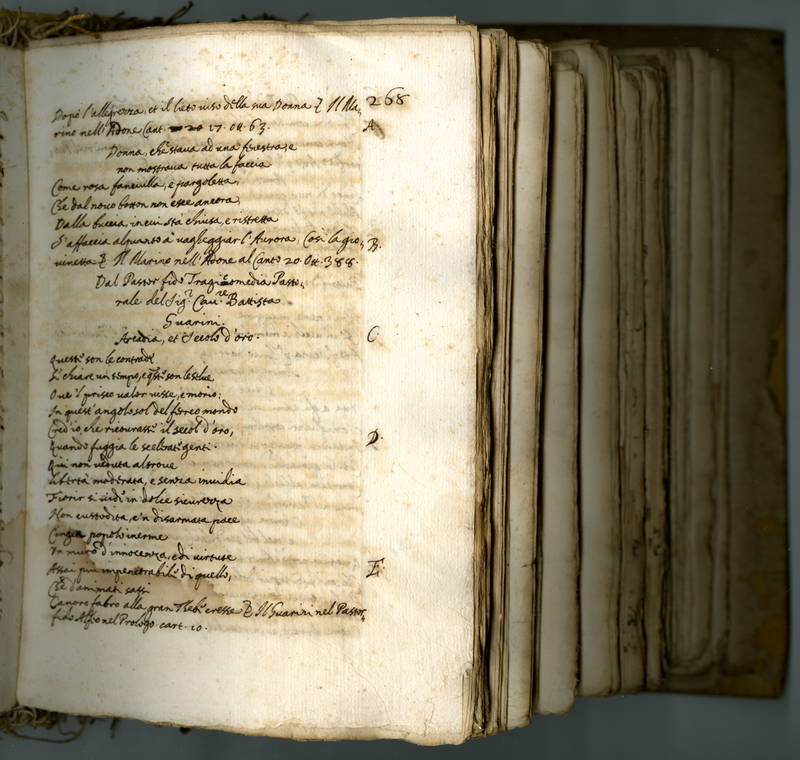 268
Dopò l'allegrezza, et il lieto viso della sua Donna Il Ma,
rino nell'Adone Cant. 17. Ott. 63.
A
Donna, che stava ad una fenestra, e
non mostrava tutta la faccia
Come rosa fanciulla, e pargoletta,
Che dal novo botton non esce ancora,
Dalla buccia, in cui sta chiusa, e ristretta
S'affaccia alquanto à vagheggiar l'Aurora, Cosi la gio,
B.
vinetta Il Marino nell'Adone al Canto 20 Ott. 388.
Dal Pastor fido Tragicomedia Pasto,
rale del Sigr. Cau.re Battista
Guarini.
Arcadia, et Secolo d'oro.
C.
Queste son le contrade
Si chiare un tempo, e queste son le selve
Ove 'l prisco valor visse, e morio:
In quest'angolo sol del ferreo mondo
Cred'io, che ricourasse il secol d'oro,
D.
Quando fuggia le scelerate genti.
Qui non veduta altrove
Libertà moderata, e senza invidia
Fiorir si vide in dolce sicurezza
Non custodita, e 'n disarmata pace
Cingea popolo inerme
Un muro d'innocenza, e di virtute
Assai più impenetrabile di quello,
E.
Che d'animati sassi
Canoro fabro alla gran Thebe eresse Il Guarini nel Pastor
fido Alfeo nel Prologo cart. 10.